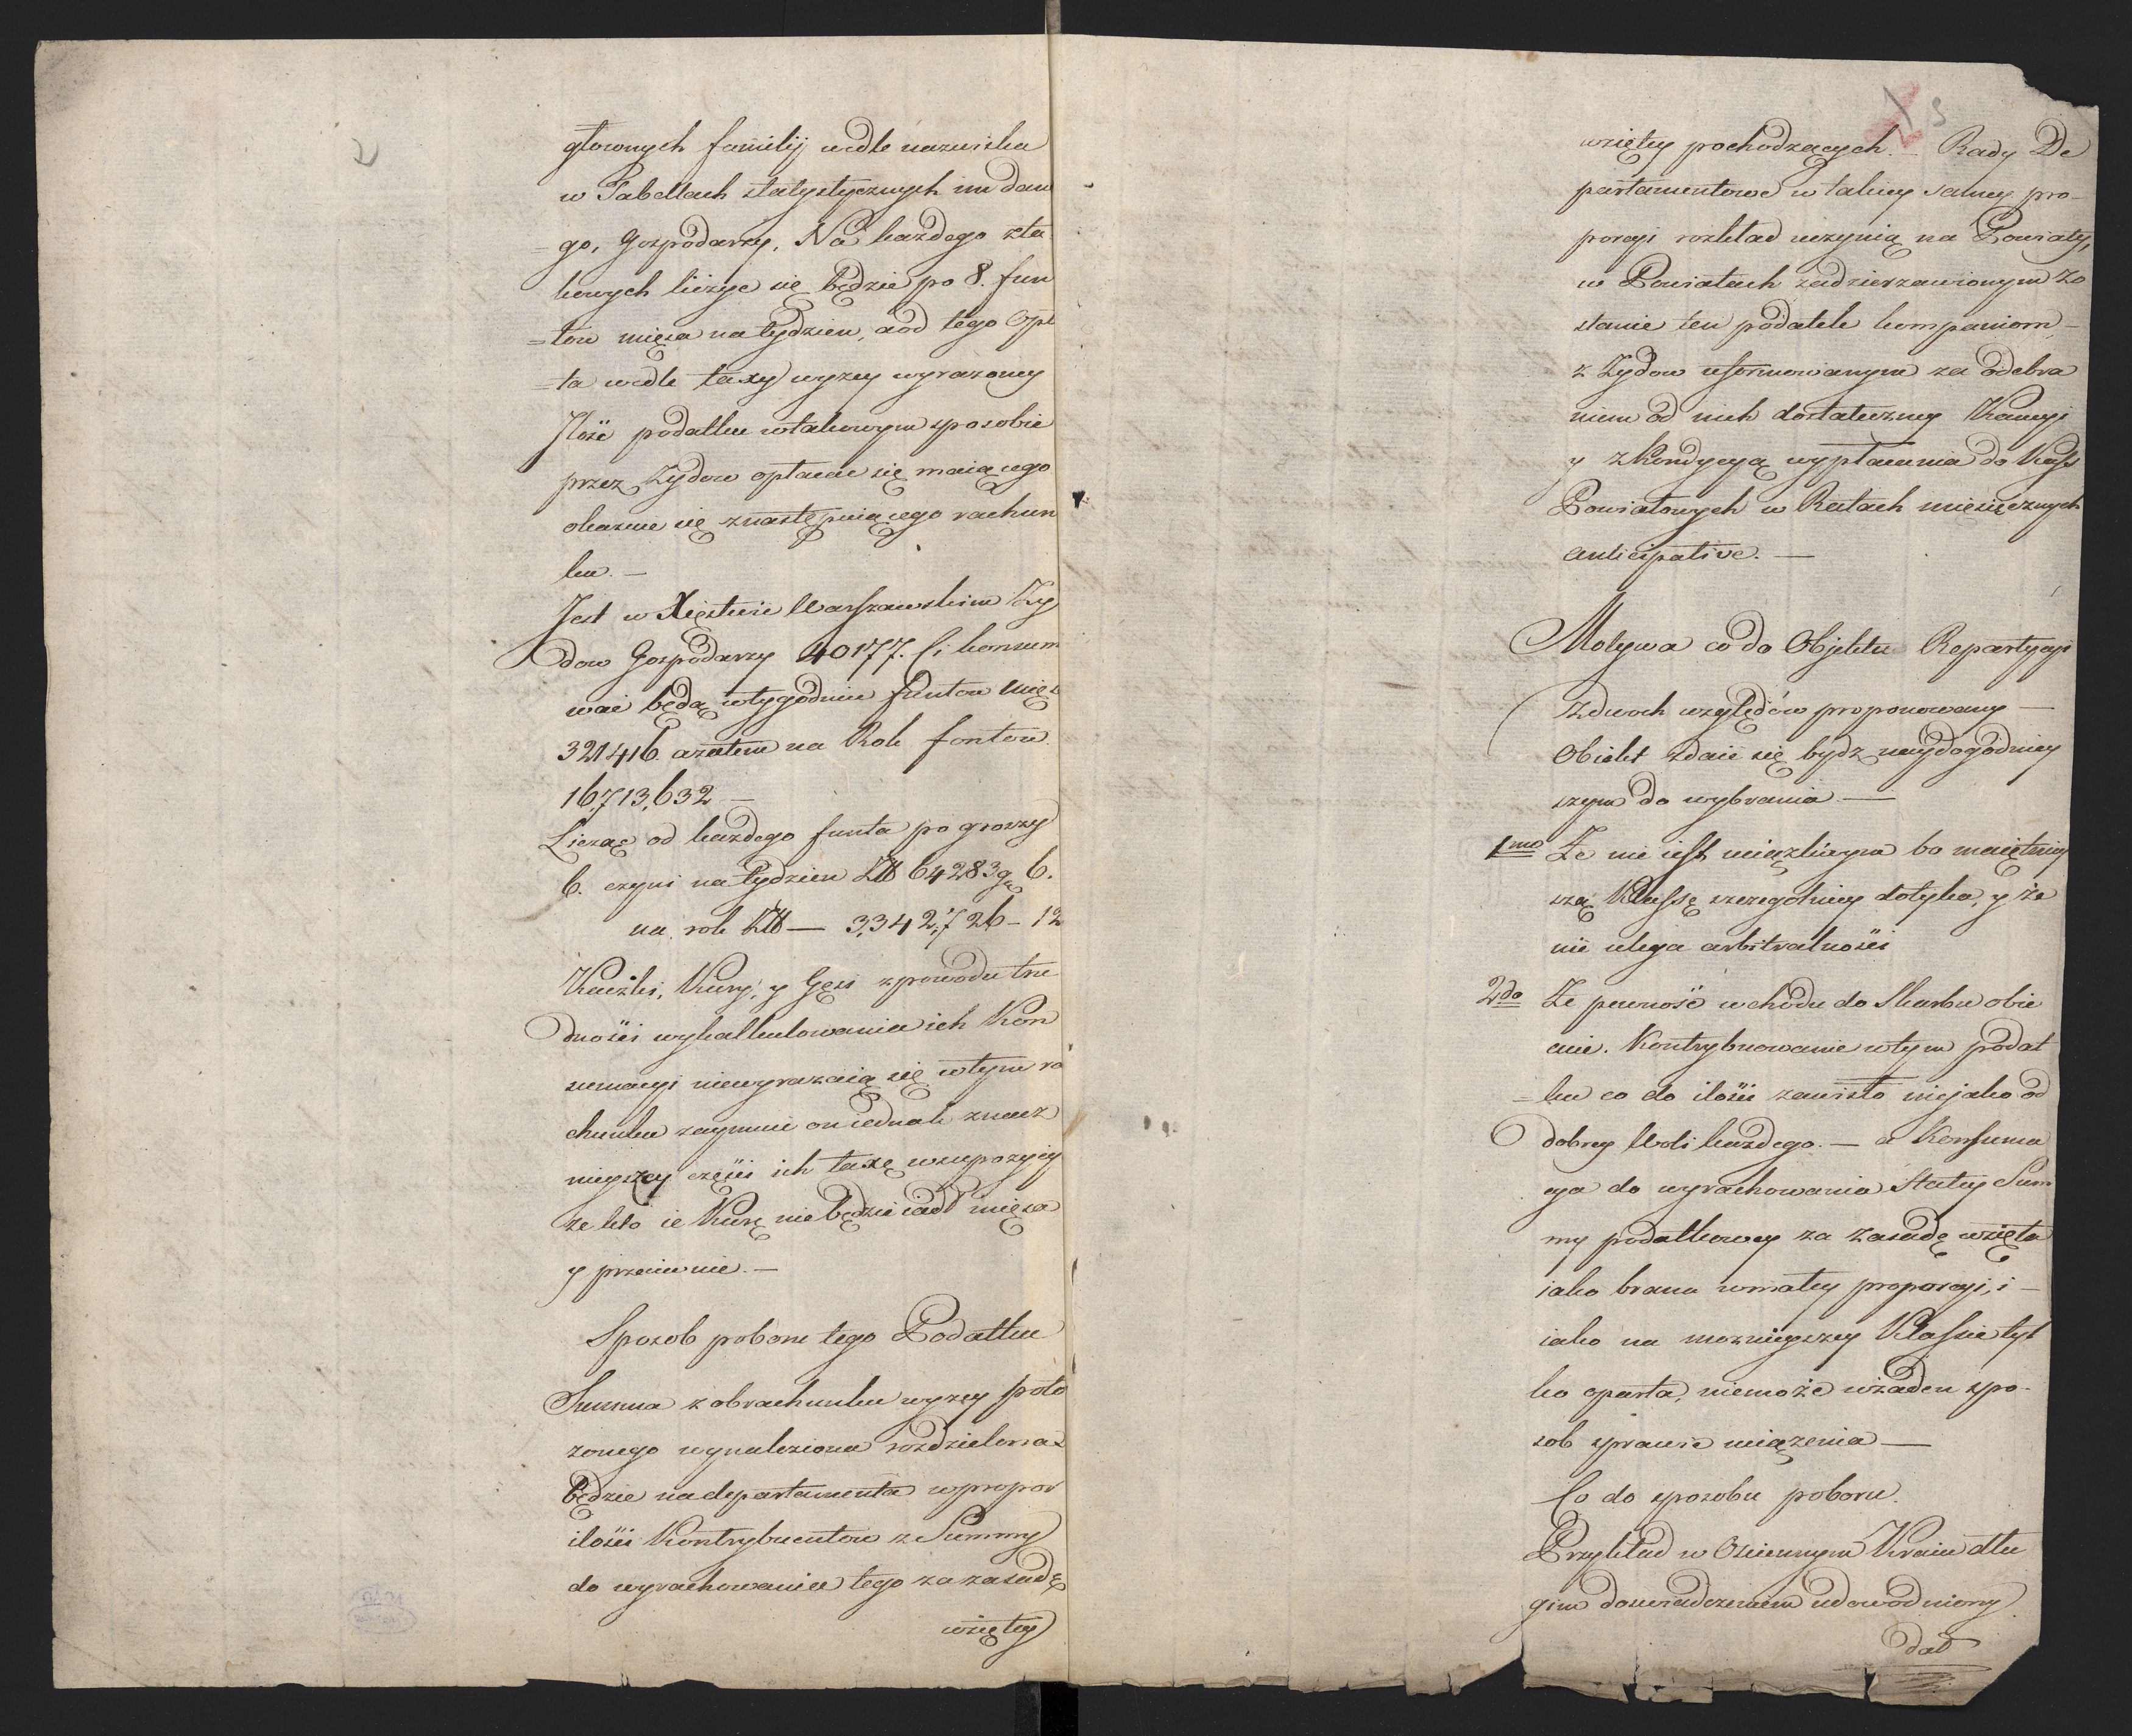 2
głownych familij wedle nazwiska
w Tabellach statystycznych im dane
=go, Gospodarzy, Na każdego zta
kowych liczyc się będzie po 8. fun
=tow mięsa na tydzien, a od tego Opł
=ta wedle taxy wyzey wyrazoney
Ilość podatku w takowym sposobie
przez Zydow opłacac się maiącego
okazuie się z następuiącego rachun
ku. —
Jest w Xięstwie Warszawskim Zy
dow Gospodarzy 40177. Ci konsum
wać będą w tygodniu funtow mięs
321416. a zatem na Rok fontow
16,713,632 —
Licząc od każdego funta po groszy
6. czyni na tydzien Złł 64283 gr 6.
na rok Złł — 3,342,726 — 12
Kaczki, Kury, y Gęsi z powodu tru
dności wykalkulowania ich Kon
sumacyi niewyrazaią się w tym ra
chunku zaymuie on iednak znacz
nieyszey części ich taxę w supozycyi
że kto ie Kurę nie będzie iadł mięsa
y przeciwnie. —
Sposob poboru tego Podatku
Summa z obrachunku wyzey poło
zonego wynaleziona rozdzielona
będzie na departamenta w propor
ilości Kontrybuentow z Summy
do wyrachowania tego za zasadę
wzięty
3
wzięty pochodzących. — Rady De
partamentowe w takiey samey pro-
porcyi rozkład uczynią na Powiaty,
w Powiatach zadzierzawionym zo
stanie ten podatek kompaniom —
z Zydow uformowanym za odebra
niem od nich dostateczney Kaucyi
y z Kondycyą wypłacania do Kass
Powiatowych w Ratach miesięcznych
anticipative. —
Motywa co do Objektu Repartycyi
Z dwoch względów proponowany —
Obiekt zdaie się bydz naydogodniey
szym do wybrania —
1mo Ze nie iest uciązliwym bo maiętniey
szą Klassę szczegolniey dotyka, y że
nie ulega arbitralności
2do Ze pewność wchodu do Skarbu obie
cuie. Kontrybuowanie w tym podat
=ku co do ilości zawisło niejako od
dobrey Woli każdego. — a Konsuma
cya do wyrachowania Stałey Sum
my podatkowey za Zasadę wzięta
iako brana w małey proporcyi, i —
iako na mozniejszey Klassie tyl
ko oparta, niemoże w żaden spo-
sob sprawic uciązenia —
Co do sposobu poboru.
Przykład w Osciennym Kraiu dłu
gim doswiadczeniem udowodniony
dał